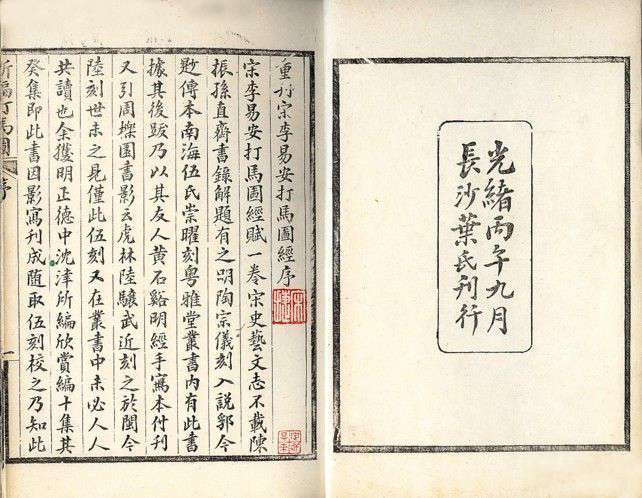 光緒丙午九月
長沙葉氏刊行
重刊宋李易安打馬圖經序
宋李易安打馬圖經賦一卷宋史藝文志不載陳
振孫直齋書錄解題有之明陶宗儀刻入說郛今
尠傳本南海伍氏崇曜刻粵雅堂叢書內有此書
據其後跋乃以其友人黃石谿明經手寫本付刊
又引周櫟園書影云虎林陸驤武近刻之於閩今
陸刻世未之見僅此伍刻又在叢書中未必人人
共讀也余獲明正德中沈津所編欣賞編十集其
癸集即此書因影寫刊成隨取伍刻校之乃知此
新編打馬圖 序 一